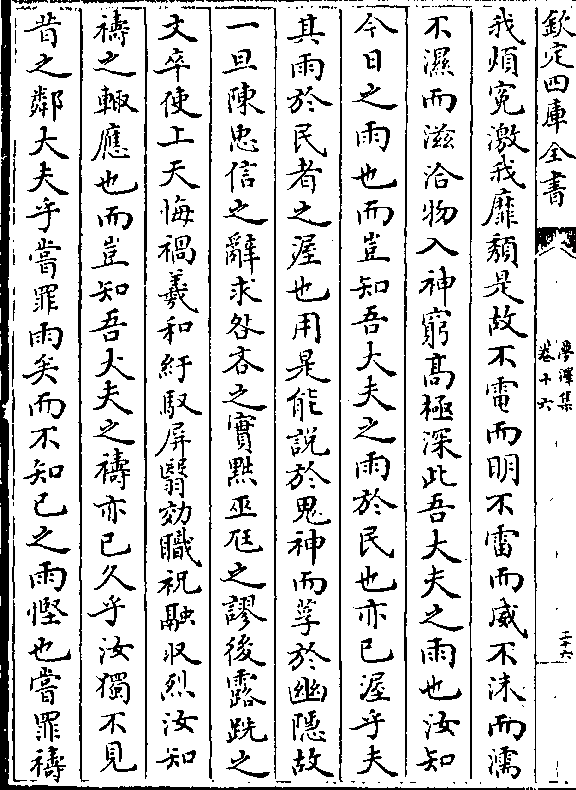 欽定四庫全書
廖澤集
卷十六
二十六
我煩寃激我靡頽是故不電而明不雷而威不沬而濡
不濕而滋洽物入神窮髙極深此吾大夫之雨也汝知
今日之雨也而豈知吾大夫之雨於民也亦已渥乎夫
其雨於民者之渥也用是能説於鬼神而孚於幽隠故
一旦陳忠信之辭求咎吝之實㸃巫尫之謬後露跣之
文卒使上天悔禍羲和紆馭屏翳効職祝融収烈汝知
禱之輙應也而豈知吾大夫之禱亦已久乎汝獨不見
昔之鄰大夫乎嘗罪雨矣而不知已之雨慳也嘗罪禱